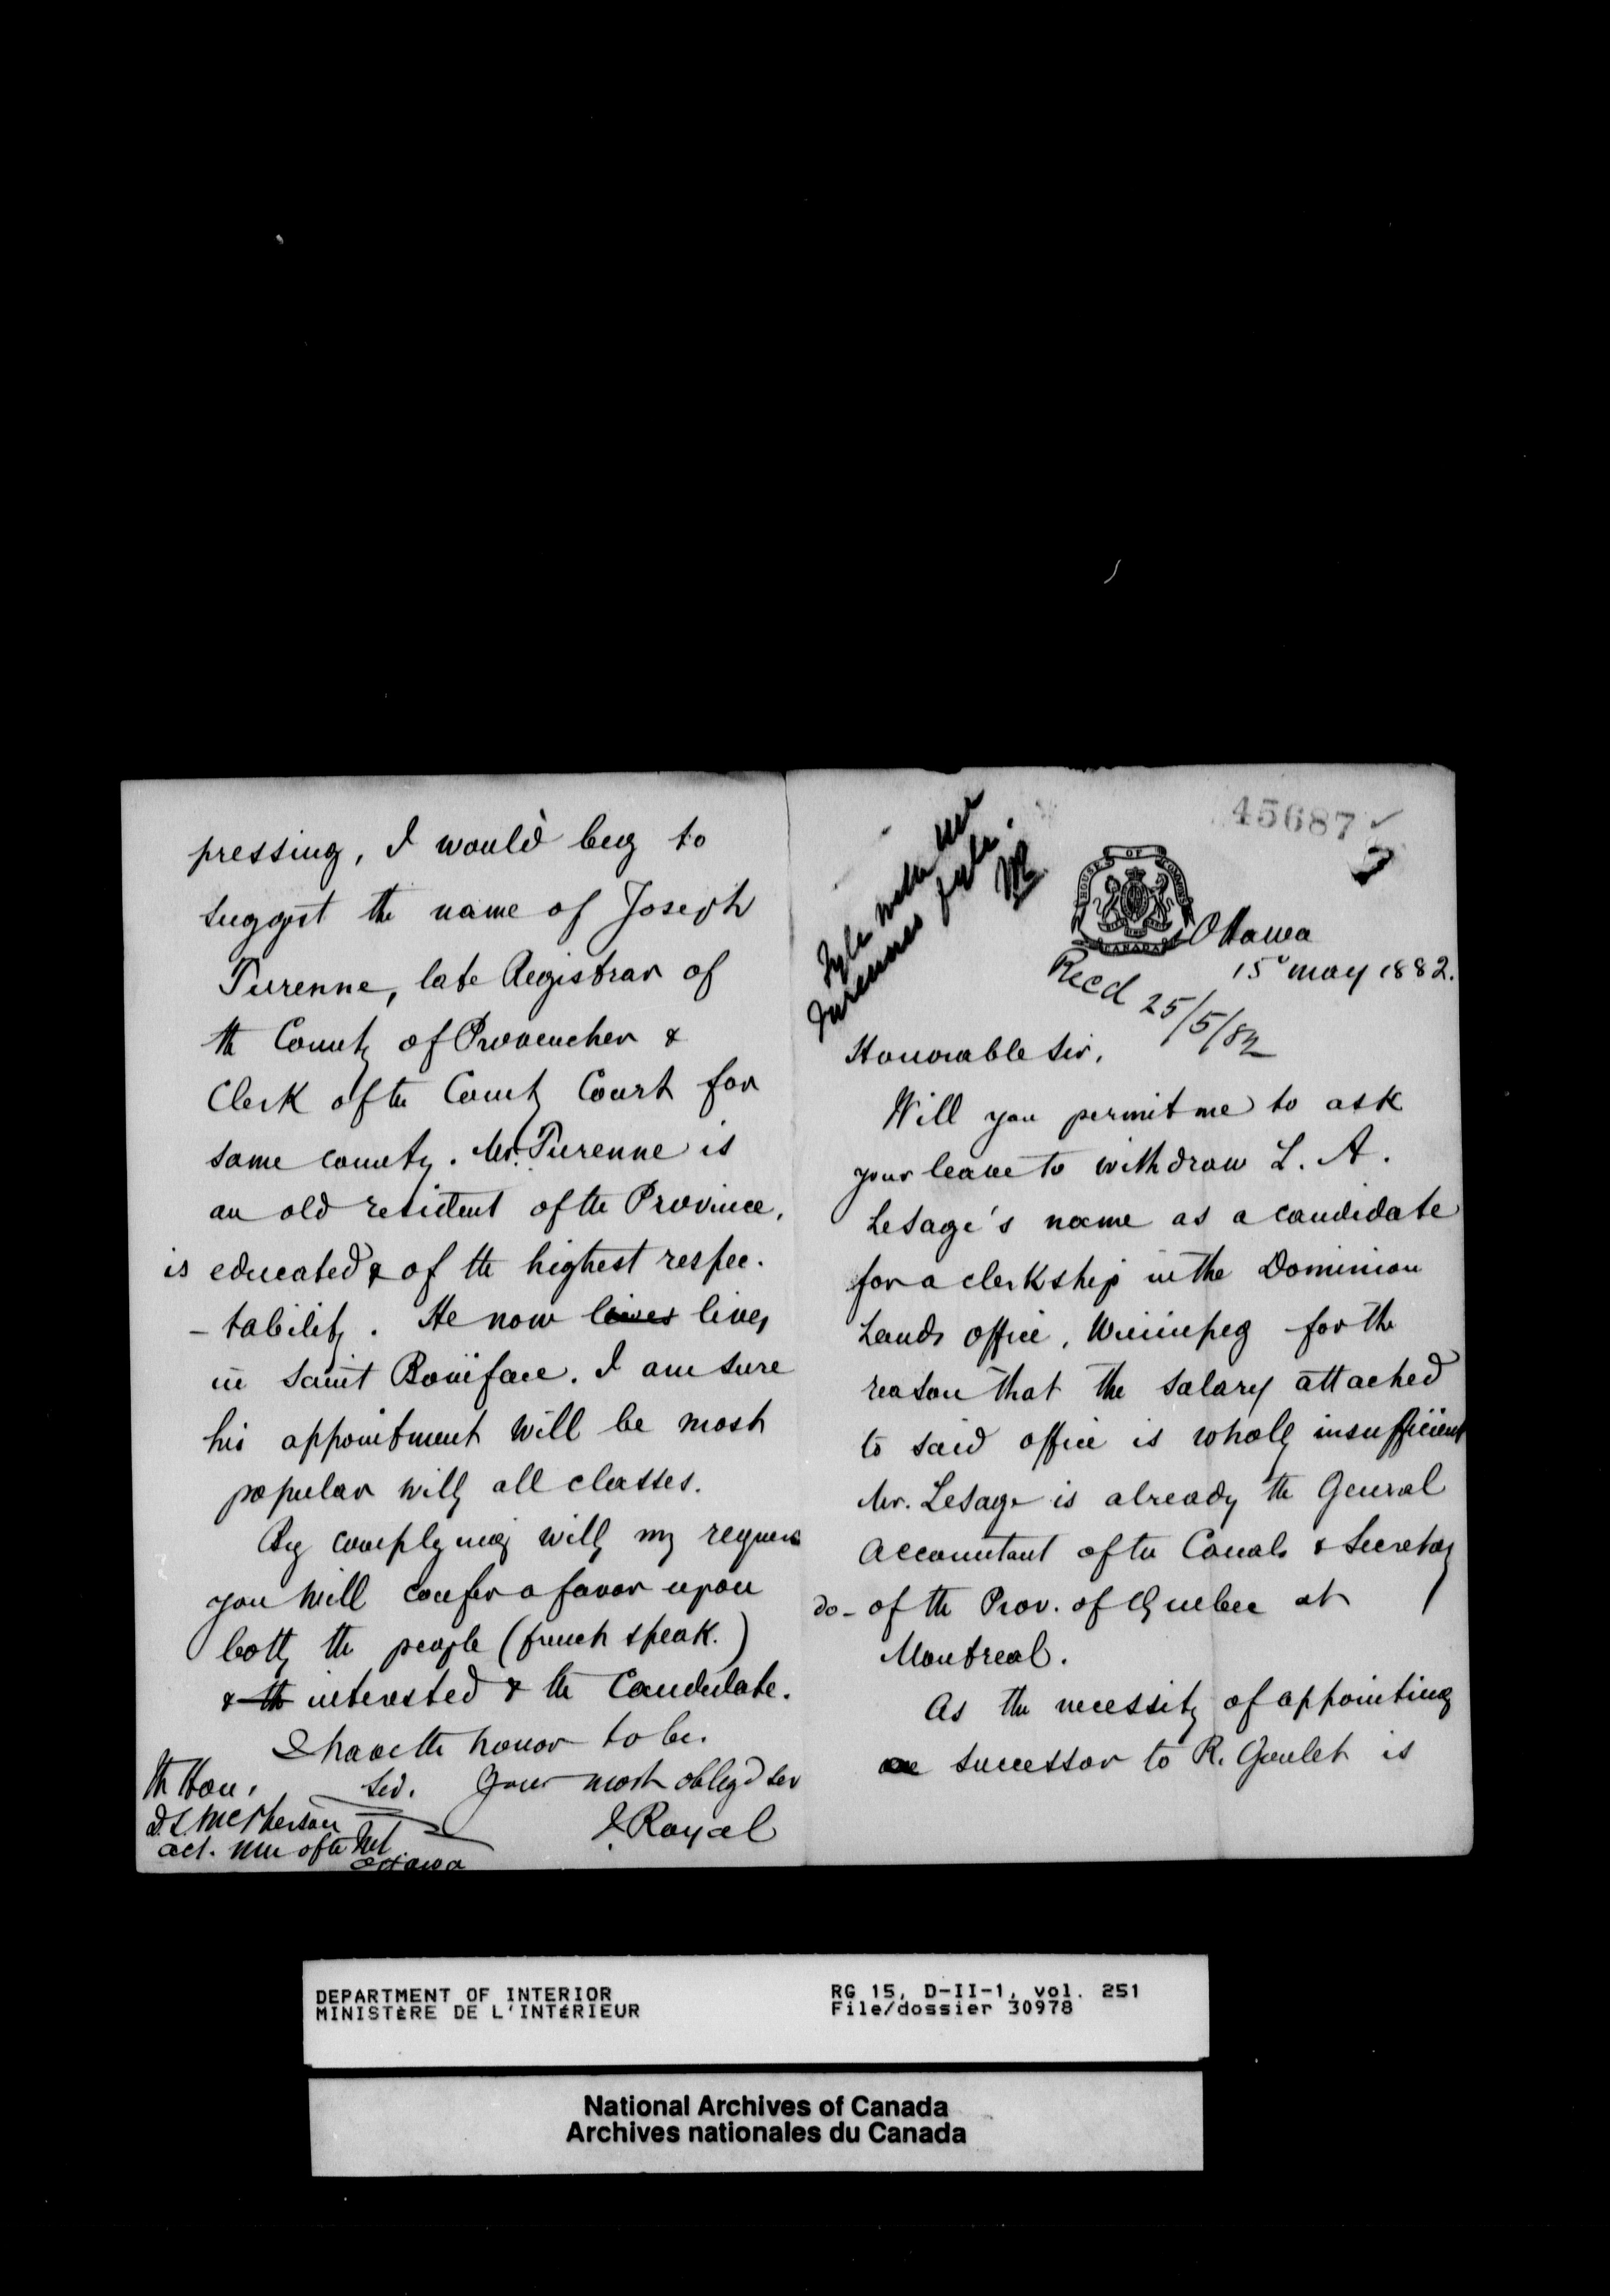 45687
HOUSE OF COMMONS
CANADA
Ottawa
15° may 1882.
Recd 25/5/82
Honorable Sir,
Will you permit me to ask
your leave to withdraw L. A.
Lesage's name as a candidate
for a clerkship in the Dominion
Lands office, Winnipeg for the
reason that the salary attached
to said office is wholly insufficient
Mr. Lesage is already the General
Accountant of the Canals & Secretary
do- of the Prov. of Quebec at
Montreal.
As the necessity of appointing
successor to R. Goulet is
pressing, I would beg to
suggest the name of Joseph
Turenne, late Registrar of
th County of Provencher &
Clerk of the County Court for
same county. Mr. Turenne is
an old resident of the Province,
is educated & of the highest respec.
- tability. He now lives lives
in Saint Boniface. I am sure
his appointment will be most
popular with all classes.
By complying with my request
you will confer a favor upon
both the people (french speak.)
& th interested & the Candidate.
I have the honor to be.
Sir. Your most oblig'd ser
J. Royal
Th Hon.
D. L. McPherson
act. Min of the Int
Ottawa
DEPARTMENT OF INTERIOR
MINISTÈRE DE L'INTÉRIEUR
RG 15, D-II-1, vol. 251
File/dossier 30978
National Archives of Canada
Archives nationales du Canada